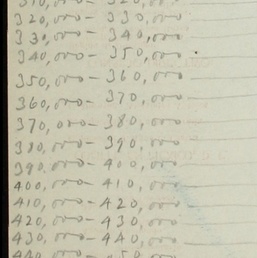 310,000 - 320,000
320,000 - 330,000
330,000 - 340,000
340,000 - 350,000
350,000 - 360,000
360,000 - 370,000
370,000 - 380,000
380,000 - 390,000
390,000 - 400,000
400,000 - 410,000
410,000 - 420,000
420,000 - 430,000
430,000 - 440,000